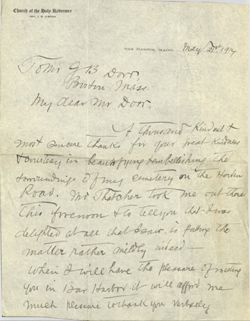 Church of the Holy Redeemer
BAR HARBOR, MAINE
May 1917
To Mr G B Dorr
Boston Mass.
My dear Mr Dorr,
A thousand kindest &
most sincere thanks for your great kindness
& courtesy in beautifying & embellishing the
surroundings of my cemetery on the
Road. Mr Thatcher took me out there
this forenoon & to tell you that I was
delighted at all that I saw, is putting the
matter rather mildly indeed —
When I will have the pleasure of meeting
you in Bar Harbor it will afford me
much pleasure to thank you verbally